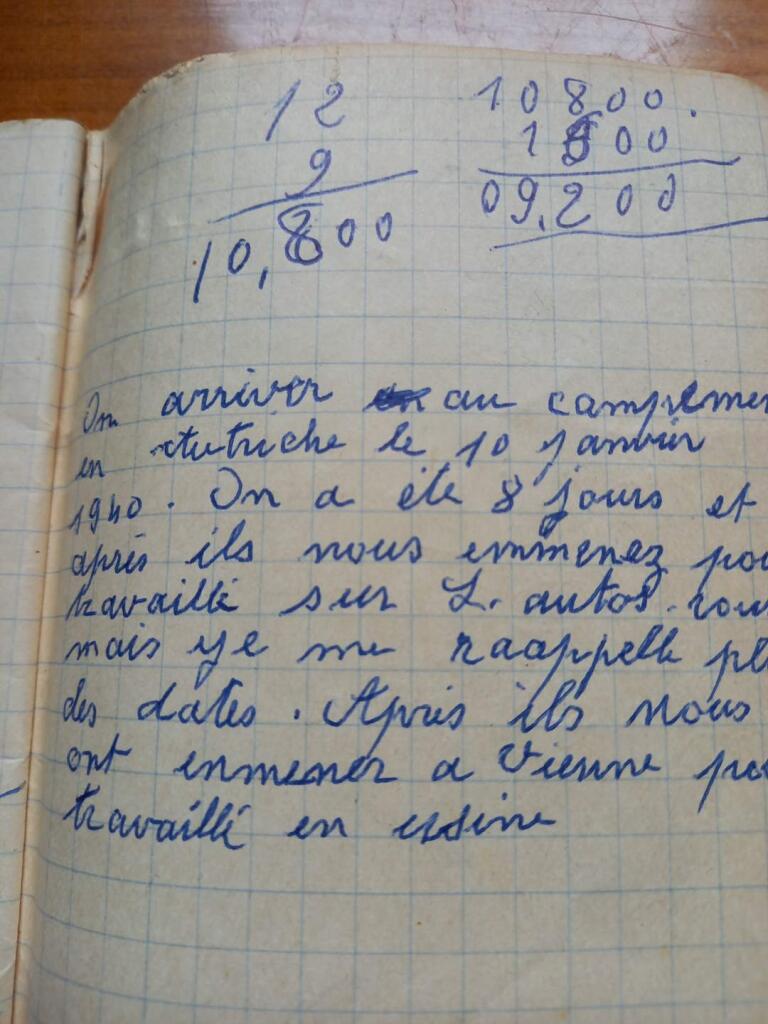 12
9
10,800
10800.
1600
09.200
On arriver au campemen
en Autriche le 10 janvier
1940. On a été 8 jours et
après ils nous emmenez pou
travaillé sur L. autos.rou
mais ye me raappelle pl
des dates. Après ils nous
ont enmener a Vienne po
travaillé en essine